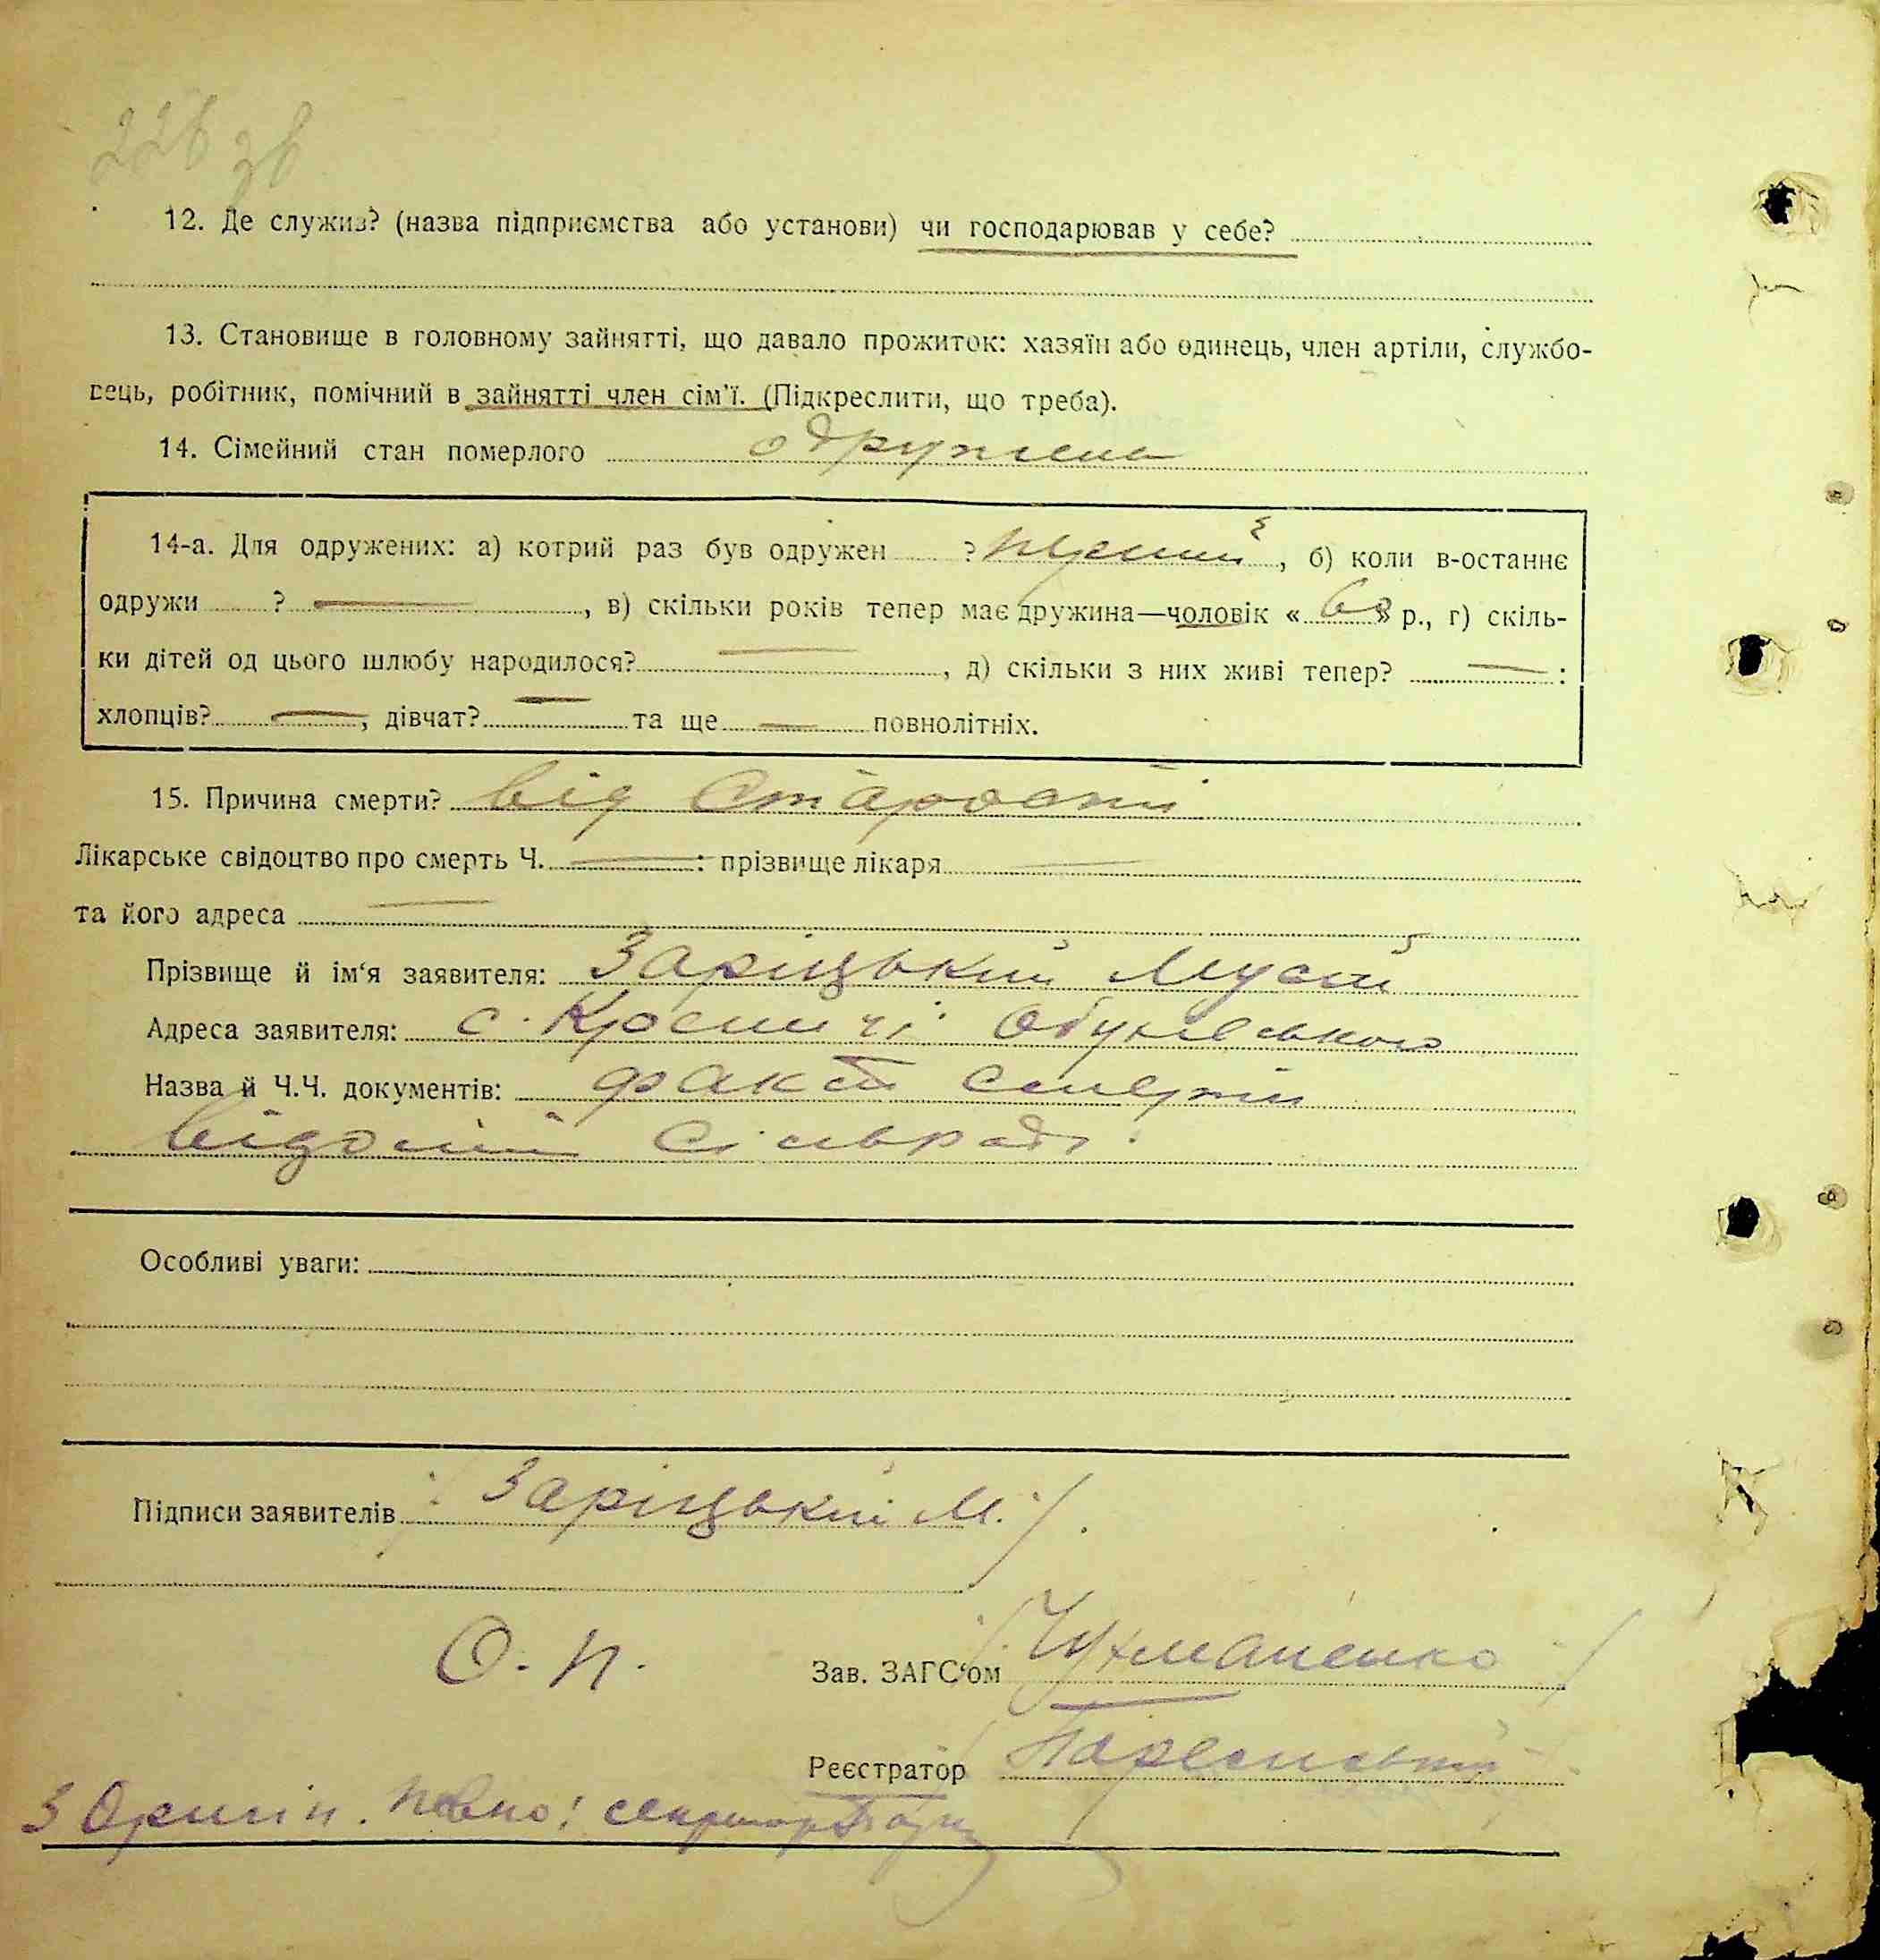 226 зв
12. Де служив? (назва підприємства або установи) чи господарював у себе?
13. Становище в головному зайнятті, що давало прожиток: хазяїн або одинець, член артіли, службо-
вець, робітник, помічний в зайнятті член сім'ї. (Підкреслити, що треба).
14. Сімейний стан померлого одружена
14-а. Для одружених: а) котрий раз був одружен ? перший, б) коли в-останнє
одружи ? —, в) скільки років тепер має дружина—чоловік « » р., г) скіль-
ки дітей од цього шлюбу народилося? —, д) скільки з них живі тепер? — :
хлопців? —, дівчат? — та ще — повнолітніх.
15. Причина смерти? від старости
Лікарське свідоцтво про смерть Ч. — : прізвище лікаря —
та його адреса —
Прізвище й ім‘я заявителя: Заріцький Мусій
Адреса заявителя: с. Красничі Обухівського
Назва й Ч.Ч. документів: факт смерти
відомий сільраді.
Особливі уваги:
Підписи заявителів /Заріцький М./.
О. П. Зав. ЗАГС‘ом /Чухманенко/
Реєстратор
З Оригін. повно: секретар